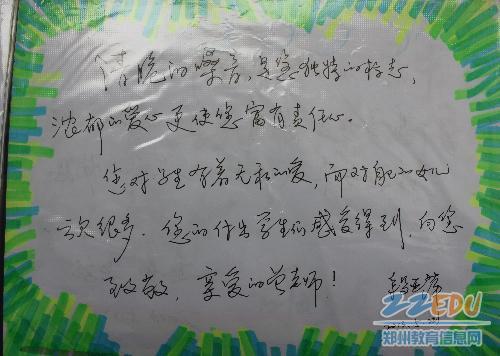 清脆的嗓音,是您独特的标志,
浓郁的爱心更使您富有责任心。
您对学生有着无私的爱,而对自己的
亏欠很多。您的付出学生们感受得到,向您
致敬,亲爱的 老师!
ZZEDU
郑州教育信息网